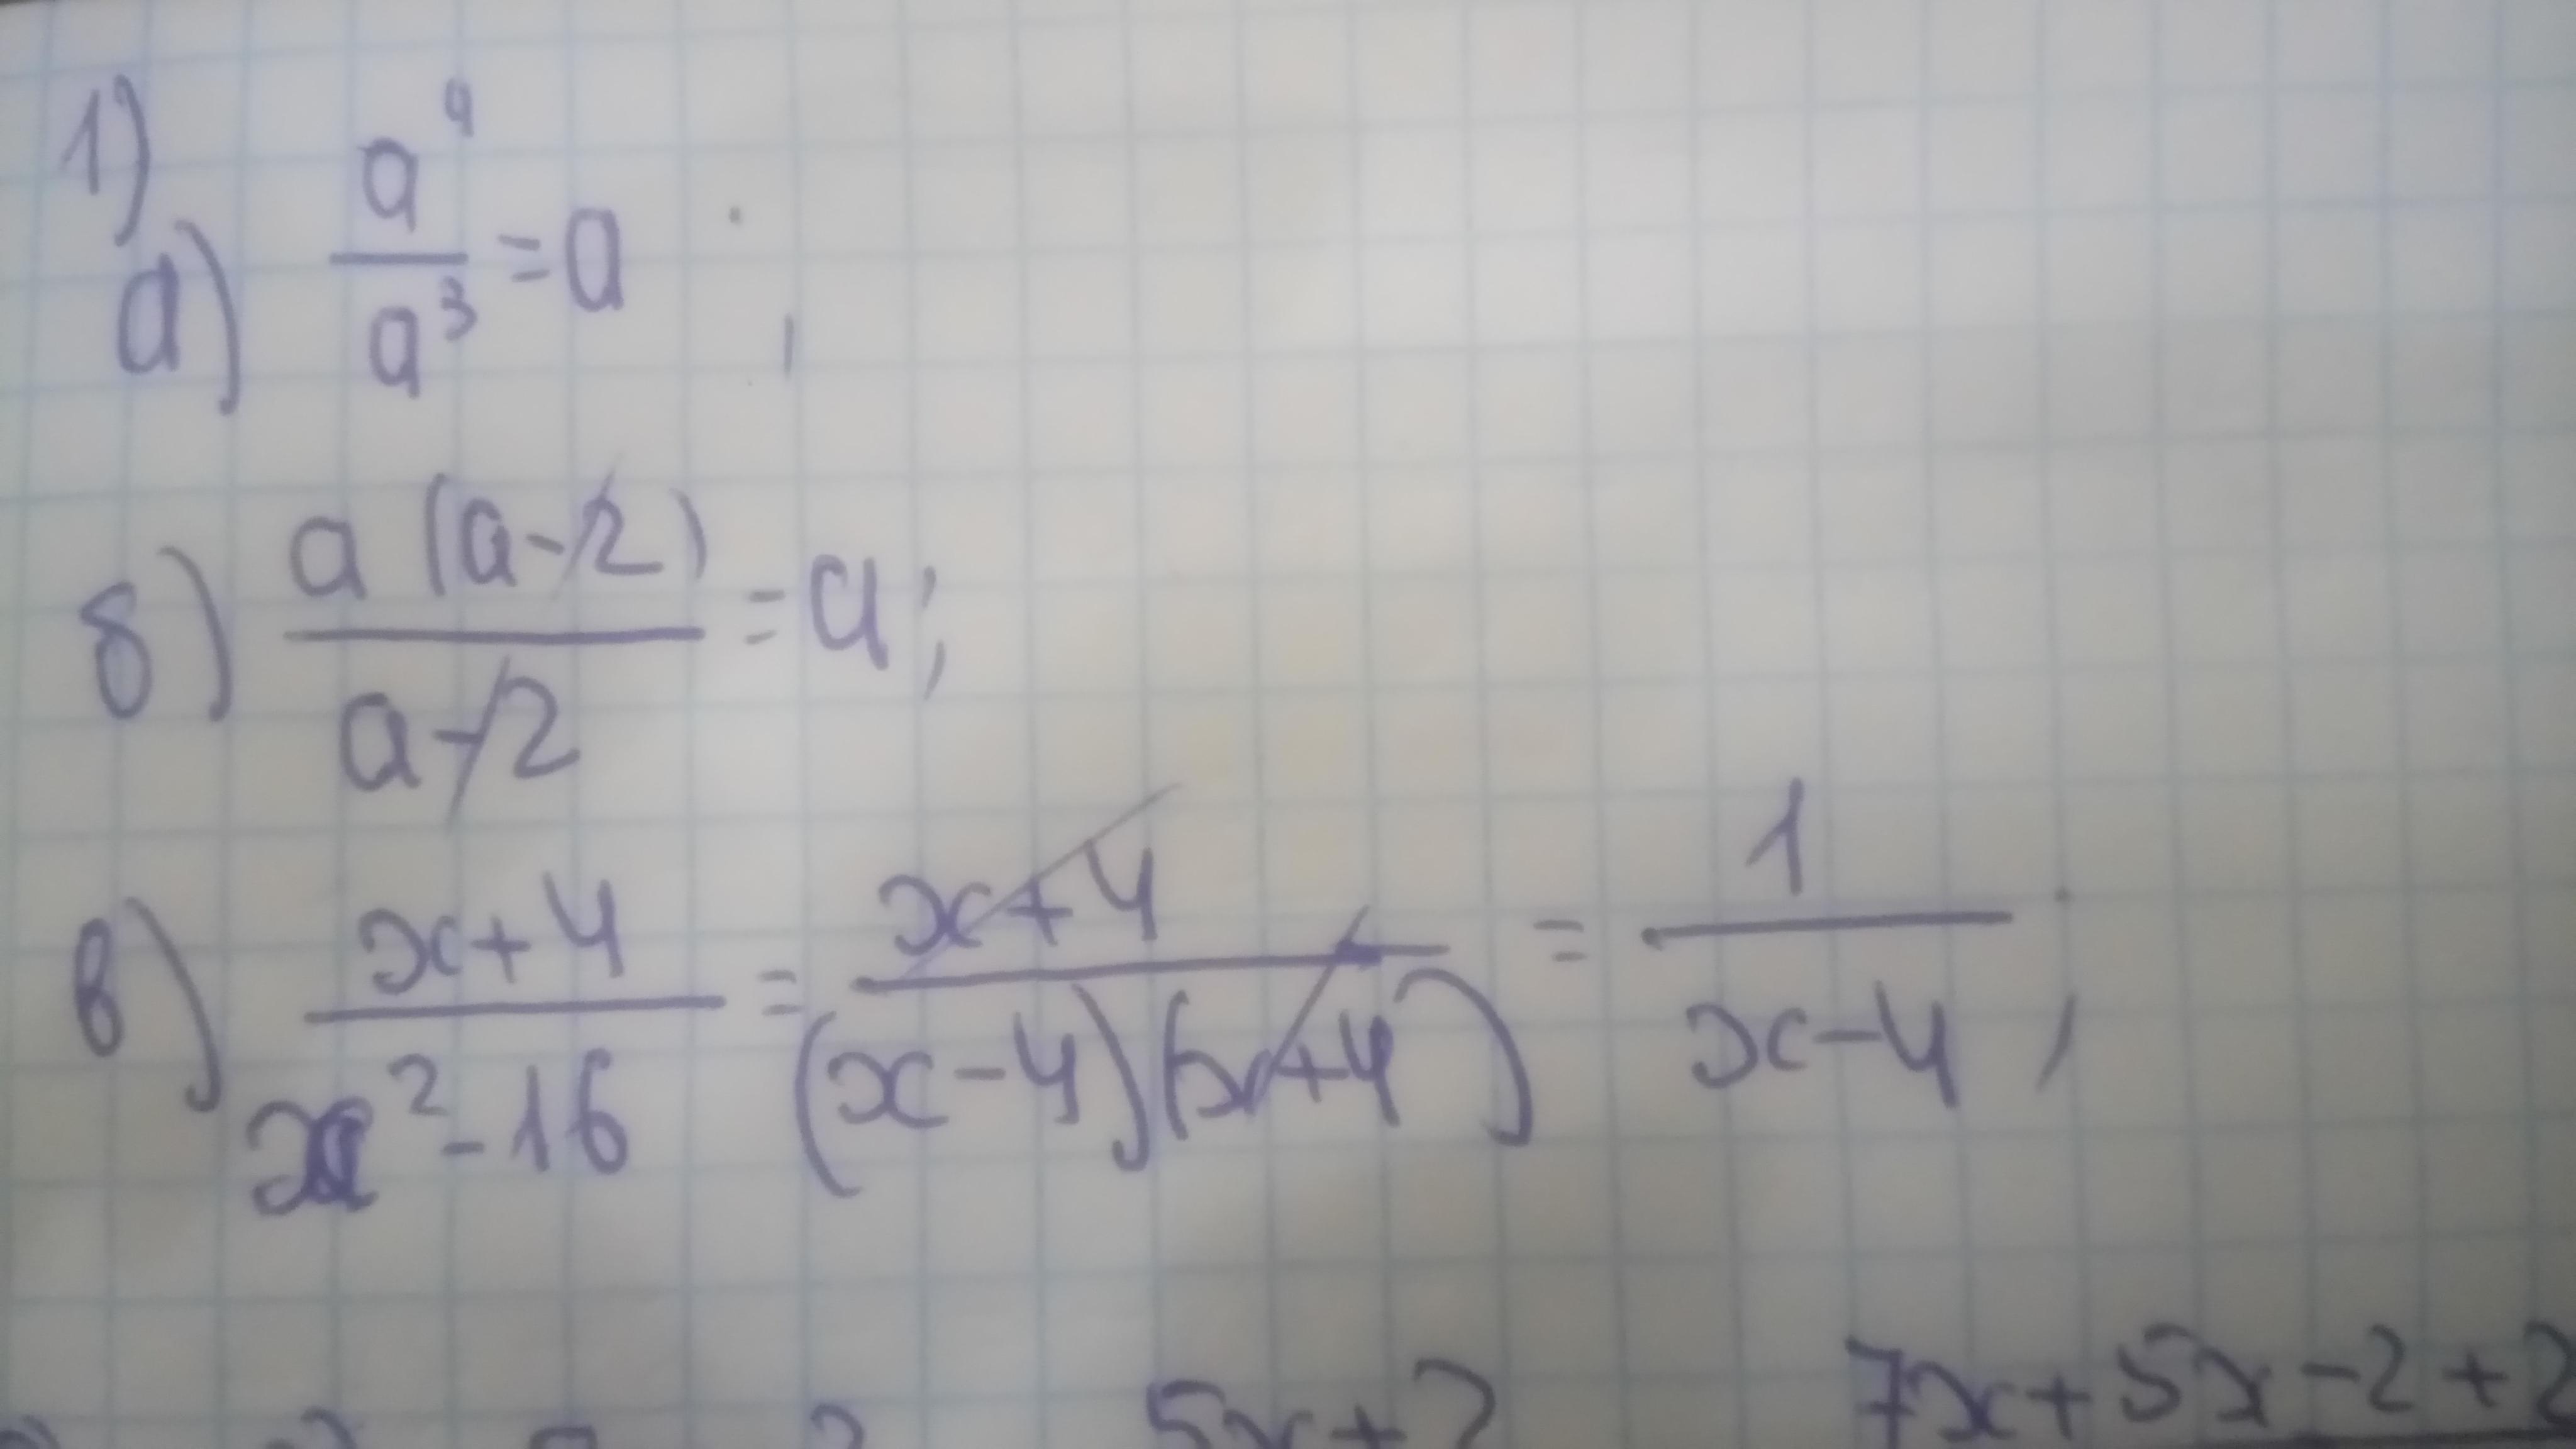 1)
а) a⁴/a³ = a ;
б) a (a-2)/a-2 = a;
в) x+4/x²-16 = x+4/(x-4)(x+4) = 1/x-4 ;
5x+2 7x+5x-2+2